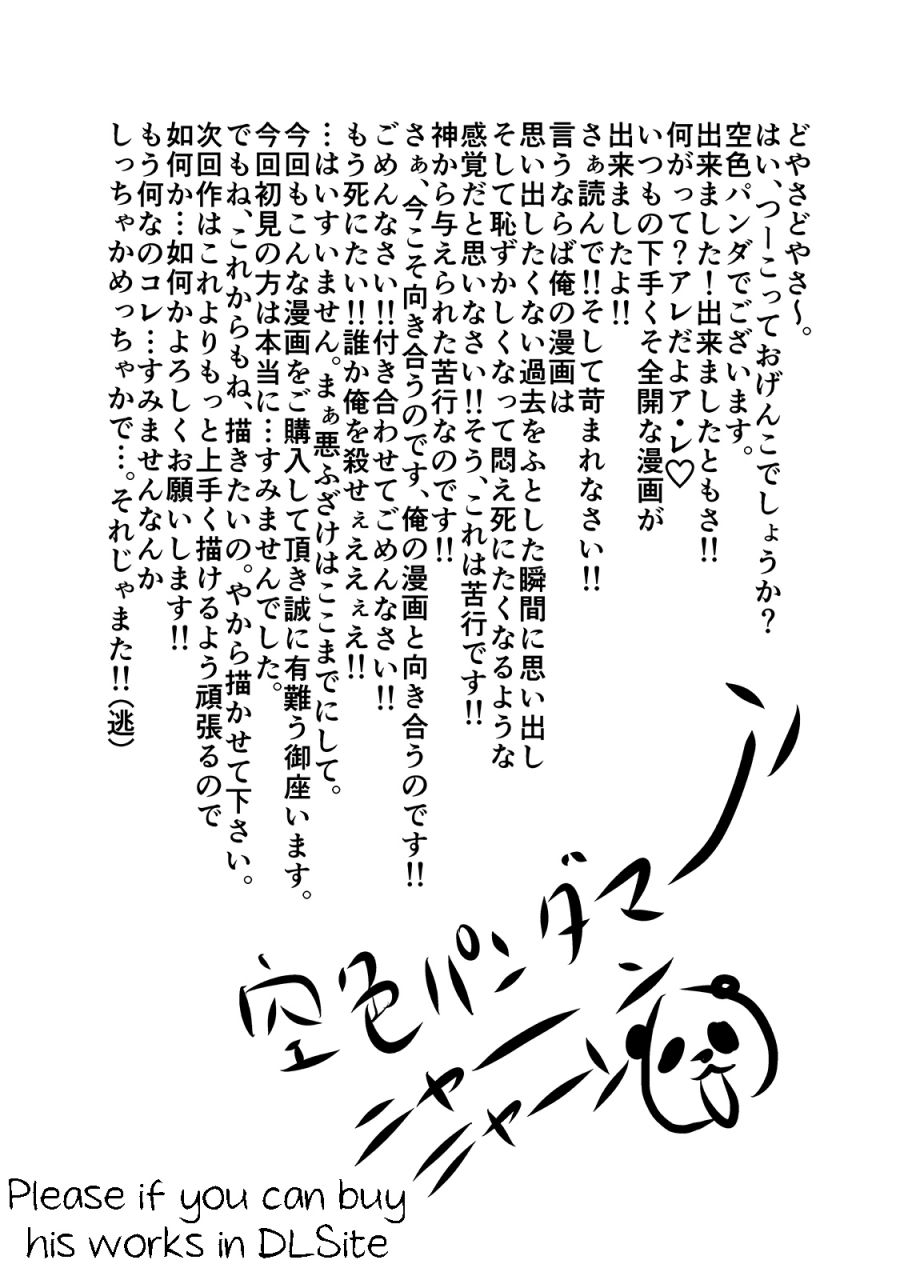 どやさどやさ〜。
はい、つーこっておげんこでしょうか？
空色パンダでございます。
出来ました！出来ましたともさ!!
何がって？アレだよア・レ♡
いつもの下手くそ全開な漫画が
出来ましたよ!!
さぁ読んで!!そして苛まれなさい!!
言うならば俺の漫画は
思い出したくない過去をふとした瞬間に思い出し
そして恥ずかしくなって悶え死にたくなるような
感覚だと思いなさい!!そう、これは苦行です!!
神から与えられた苦行なのです!!
さぁ、今こそ向き合うのです、俺の漫画と向き合うのです!!
ごめんなさい!!付き合わせてごめんなさい!!
もう死にたい!!誰か俺を殺せぇええぇえ!!
…はいすいません。まぁ悪ふざけはここまでにして。
今回もこんな漫画をご購入して頂き誠に有難う御座います。
今回初見の方は本当に…すみませんでした。
でもね、これからもね、描きたいの。やから描かせて下さい。
次回作はこれよりもっと上手く描けるよう頑張るので
如何か…如何かよろしくお願いします!!
もう何なのコレ…すみませんなんか
しっちゃかめっちゃかで…。それじゃまた!!(逃)
空色パンダマン
ニャーン
ニャーン
Please if you can buy
his works in DLSite